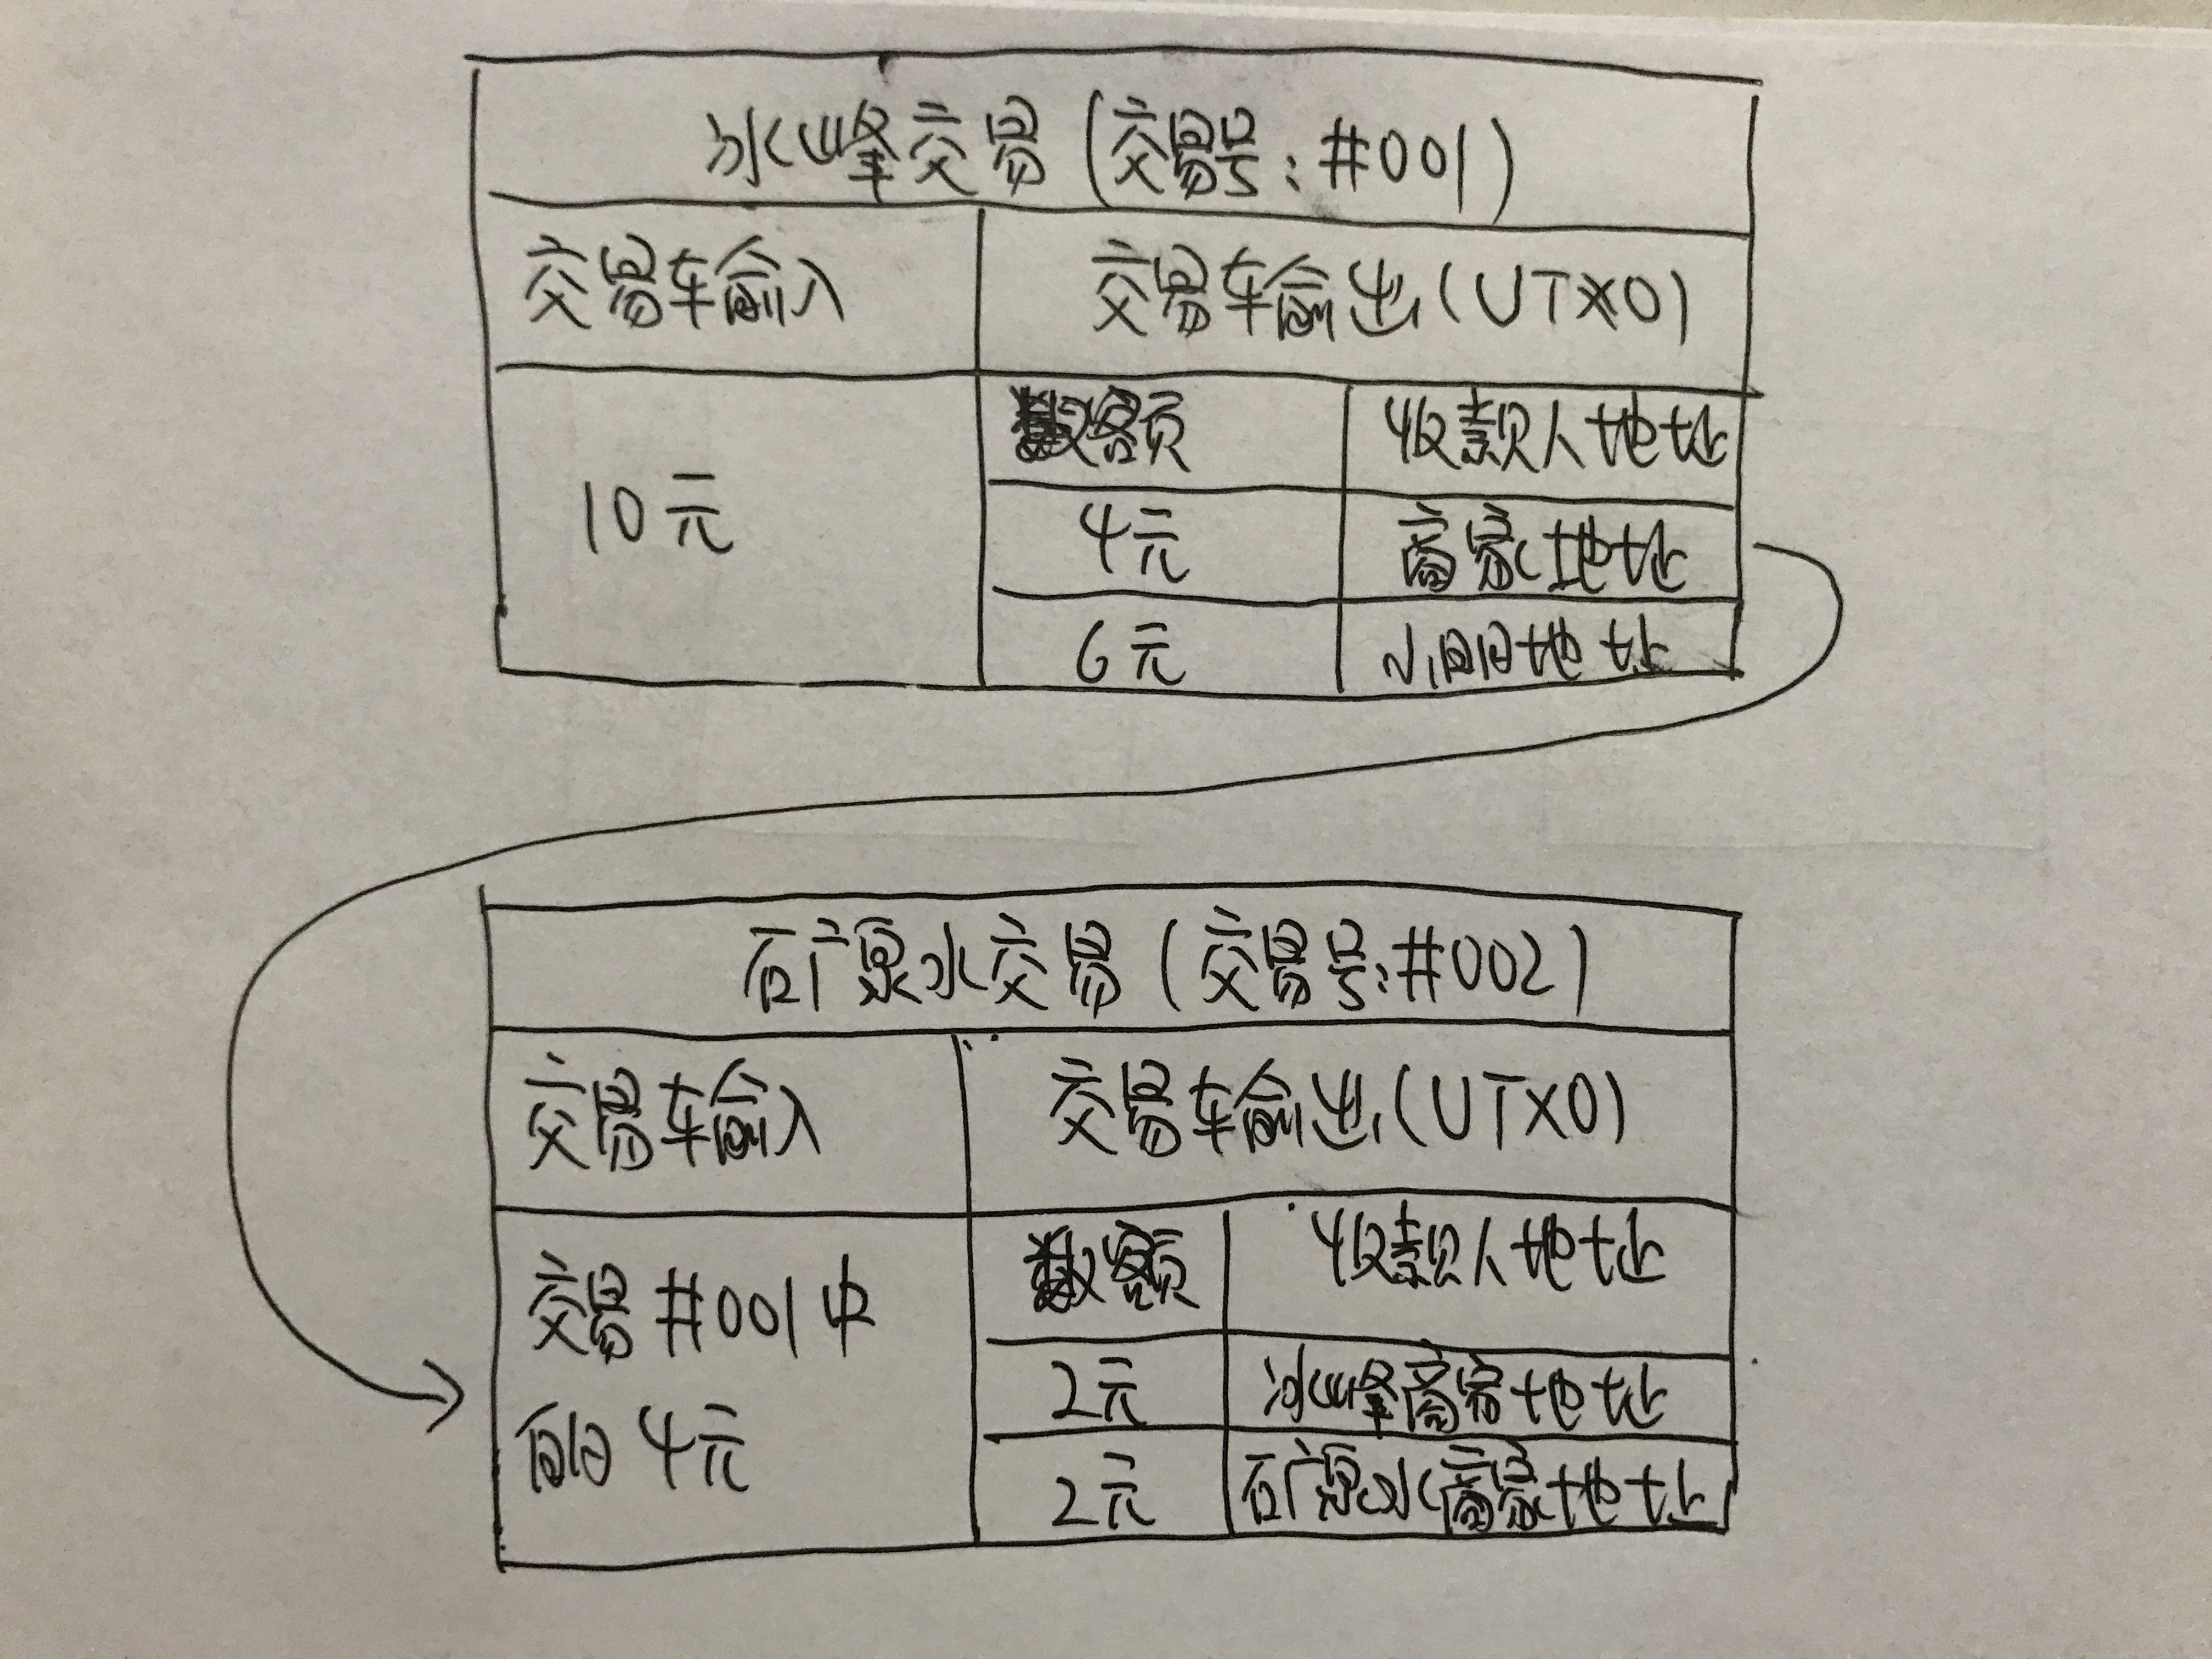 冰峰交易(交易号:#001)
交易车输入
交易车输出(UTXO)
10元
数额
收款人地址
4元
商家地址
6元
小明地址
矿泉水交易(交易号:#002)
交易车输入
交易车输出(UTXO)
交易#001中
的4元
数额
收款人地址
2元
冰峰商家地址
2元
矿泉水商家地址